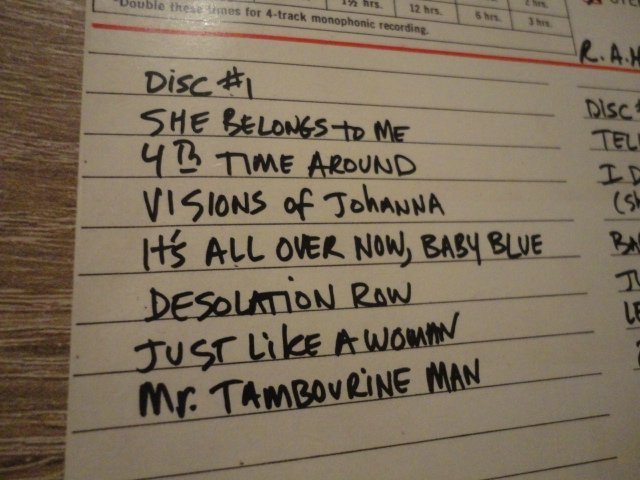 1½ hrs.
12 hrs. 6 hrs. 3 hrs.
*Double these times for 4-track monophonic recording.
R.A.H
DISC #1
SHE BELONGS to ME
4Th TIME AROUND
VISIONS of JOHANNA
It's ALL OVER NOW, BABY BLUE
DESOLATION ROW
JUST LIKE A WOMAN
Mr. TAMBOURINE MAN
DISC #
TELL
I D
(SH
BA
JU
LE